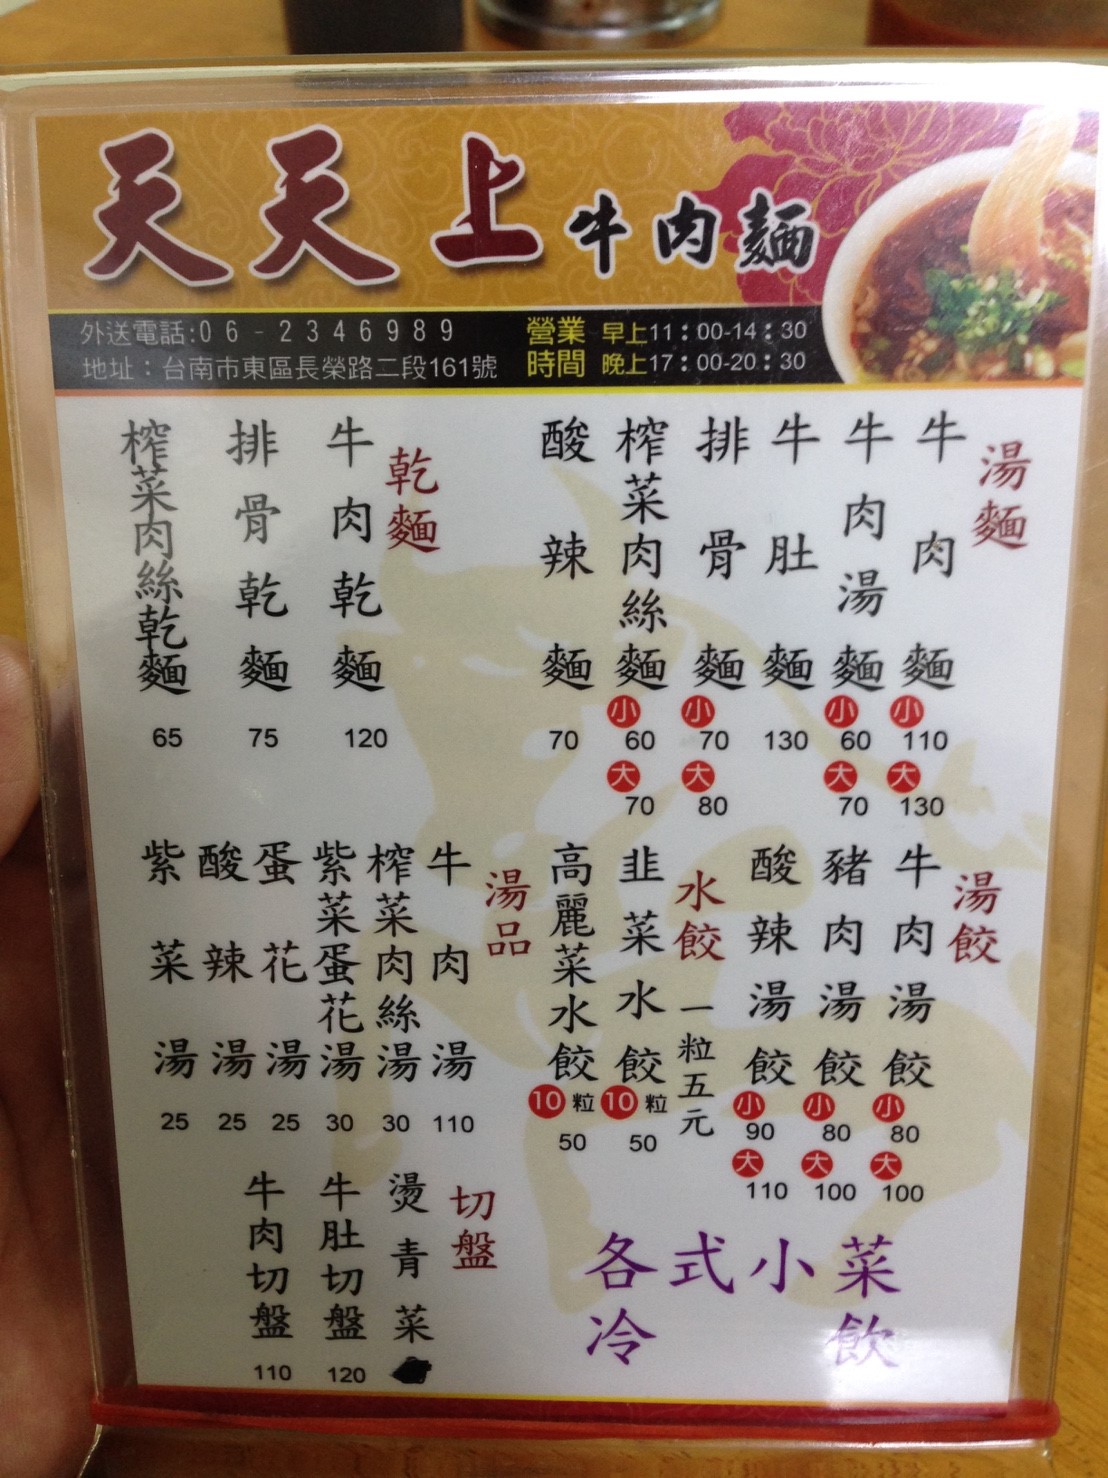 天天上牛肉麵
外送電話:06-2346989
地址：台南市東區長榮路二段161號
營業時間
早上11：00-14：30
晚上17：00-20：30
湯麵
牛肉麵 小110 大130
牛肉湯麵 小60 大70
牛肚麵 130
排骨麵 小70 大80
榨菜肉絲麵 小60 大70
酸辣麵 70
乾麵
牛肉乾麵 120
排骨乾麵 75
榨菜肉絲乾麵 65
湯餃
牛肉湯餃 小80 大100
豬肉湯餃 小80 大100
酸辣湯餃 小90 大110
水餃 一粒五元
韭菜水餃 10粒 50
高麗菜水餃 10粒 50
湯品
牛肉湯 110
榨菜肉絲湯 30
紫菜蛋花湯 30
蛋花湯 25
酸辣湯 25
紫菜湯 25
切盤
燙青菜
牛肚切盤 120
牛肉切盤 110
各式小菜
冷飲